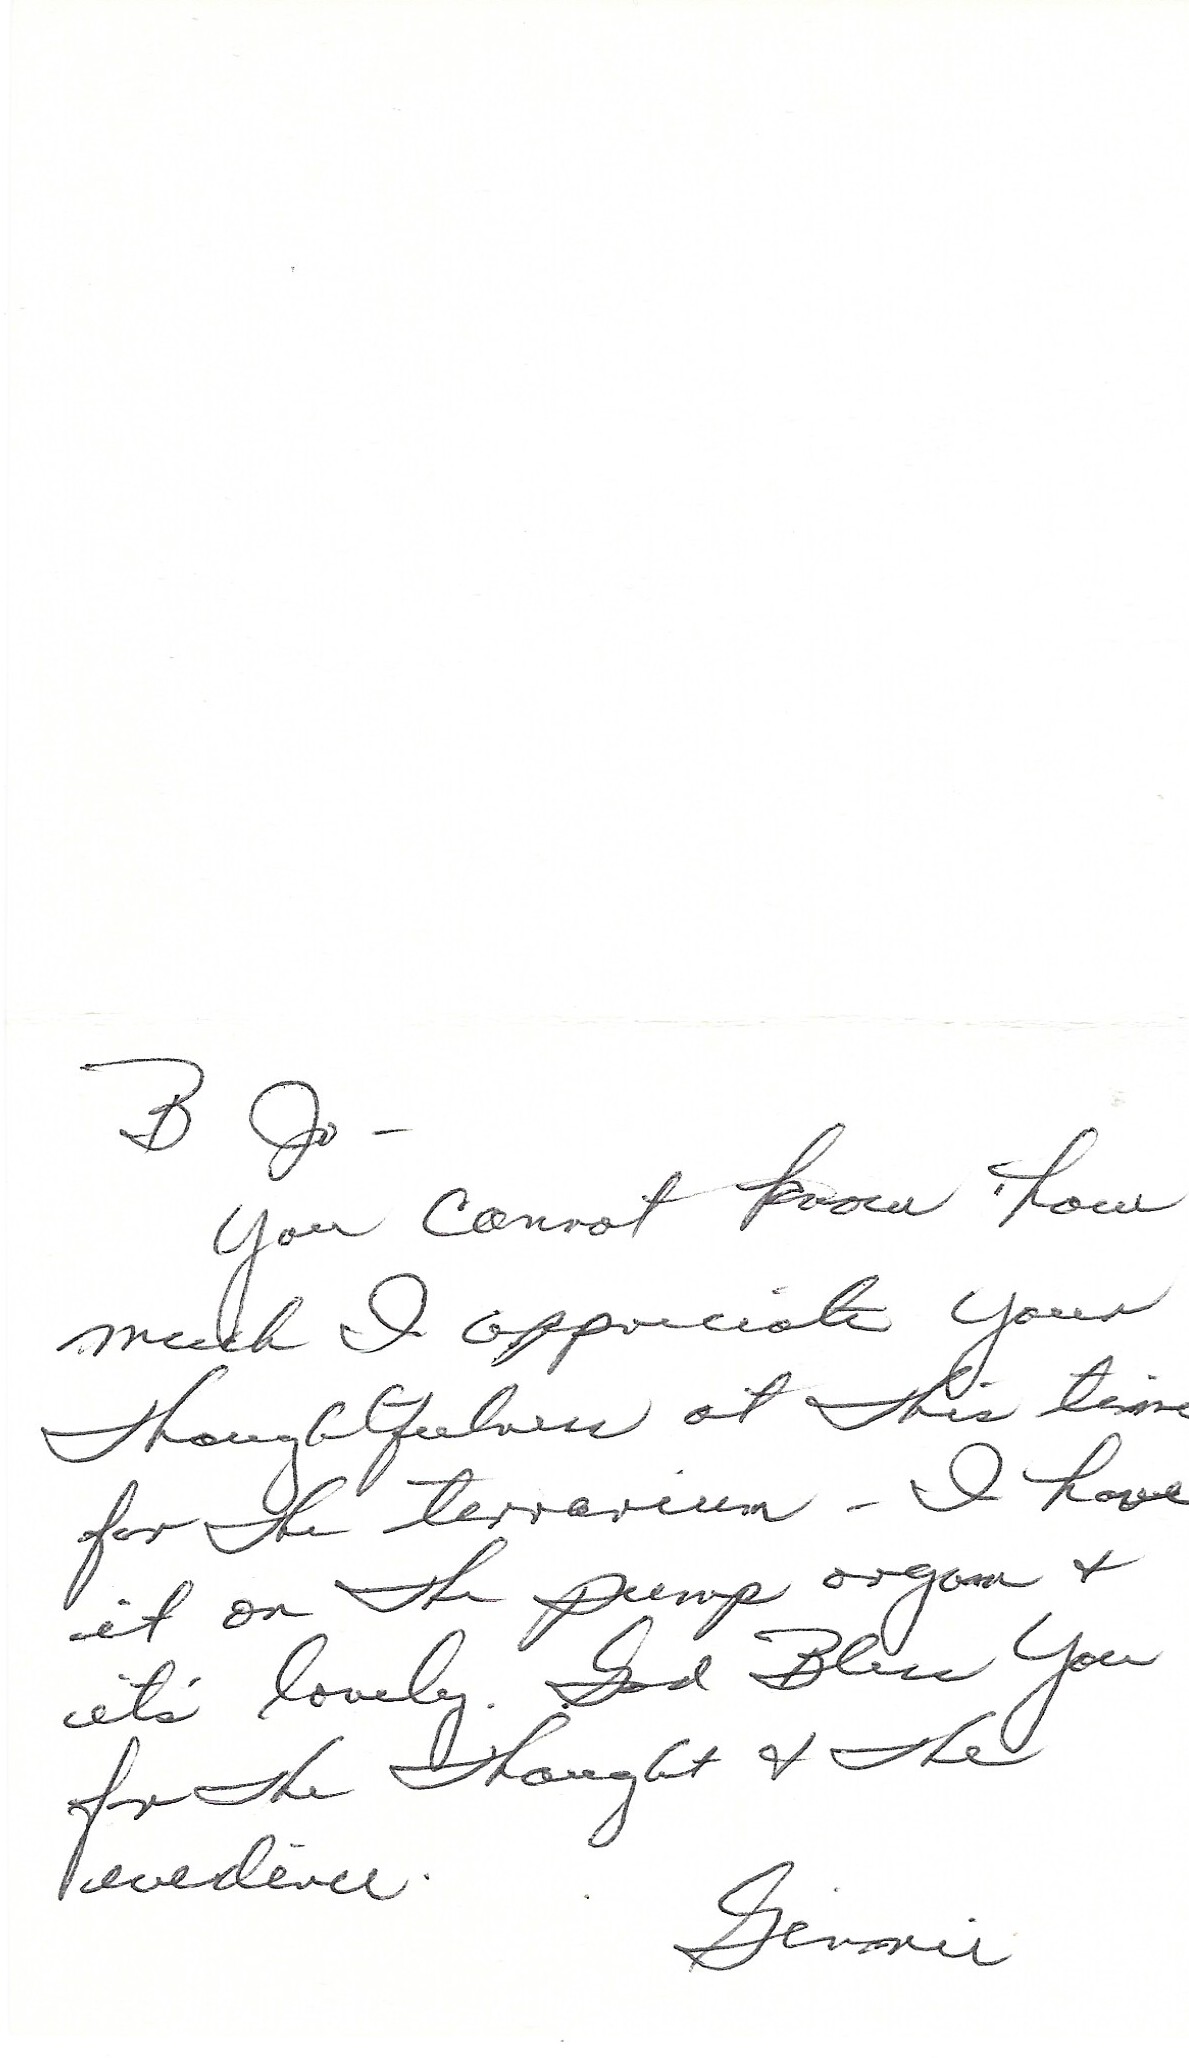 B Jo -
You cannot know how
much I appreciate your
thoughtfulness at this time
for the terrarium - I have
it on the pump organ &
it's lovely. God Bless You
for the thought & the
evedence.
Ginnie